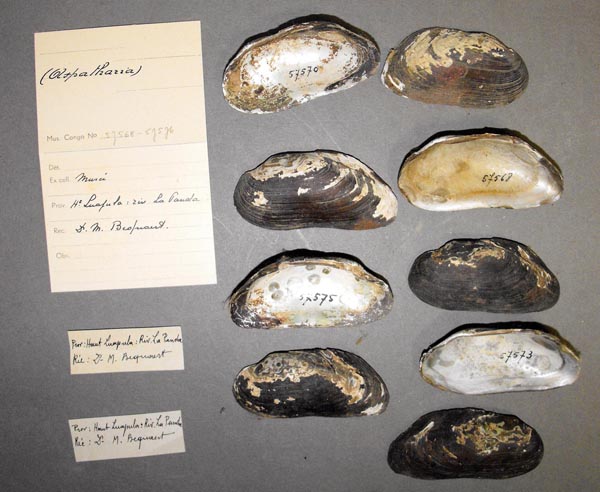 (Aspatharia)
Mus. Congo No 57568-57576
Dét.
Ex coll. Musei
Prov. Ht Luapula: riv. La Panda
Rec. Dr. M. Bequaert.
Obs.
Prov: Haut Luapula: Riv. La Panda
Réc: Dr M. Bequaert
Prov: Haut Luapula: Riv. La Panda
Réc: Dr. M. Bequaert
57570
57568
57575
57573